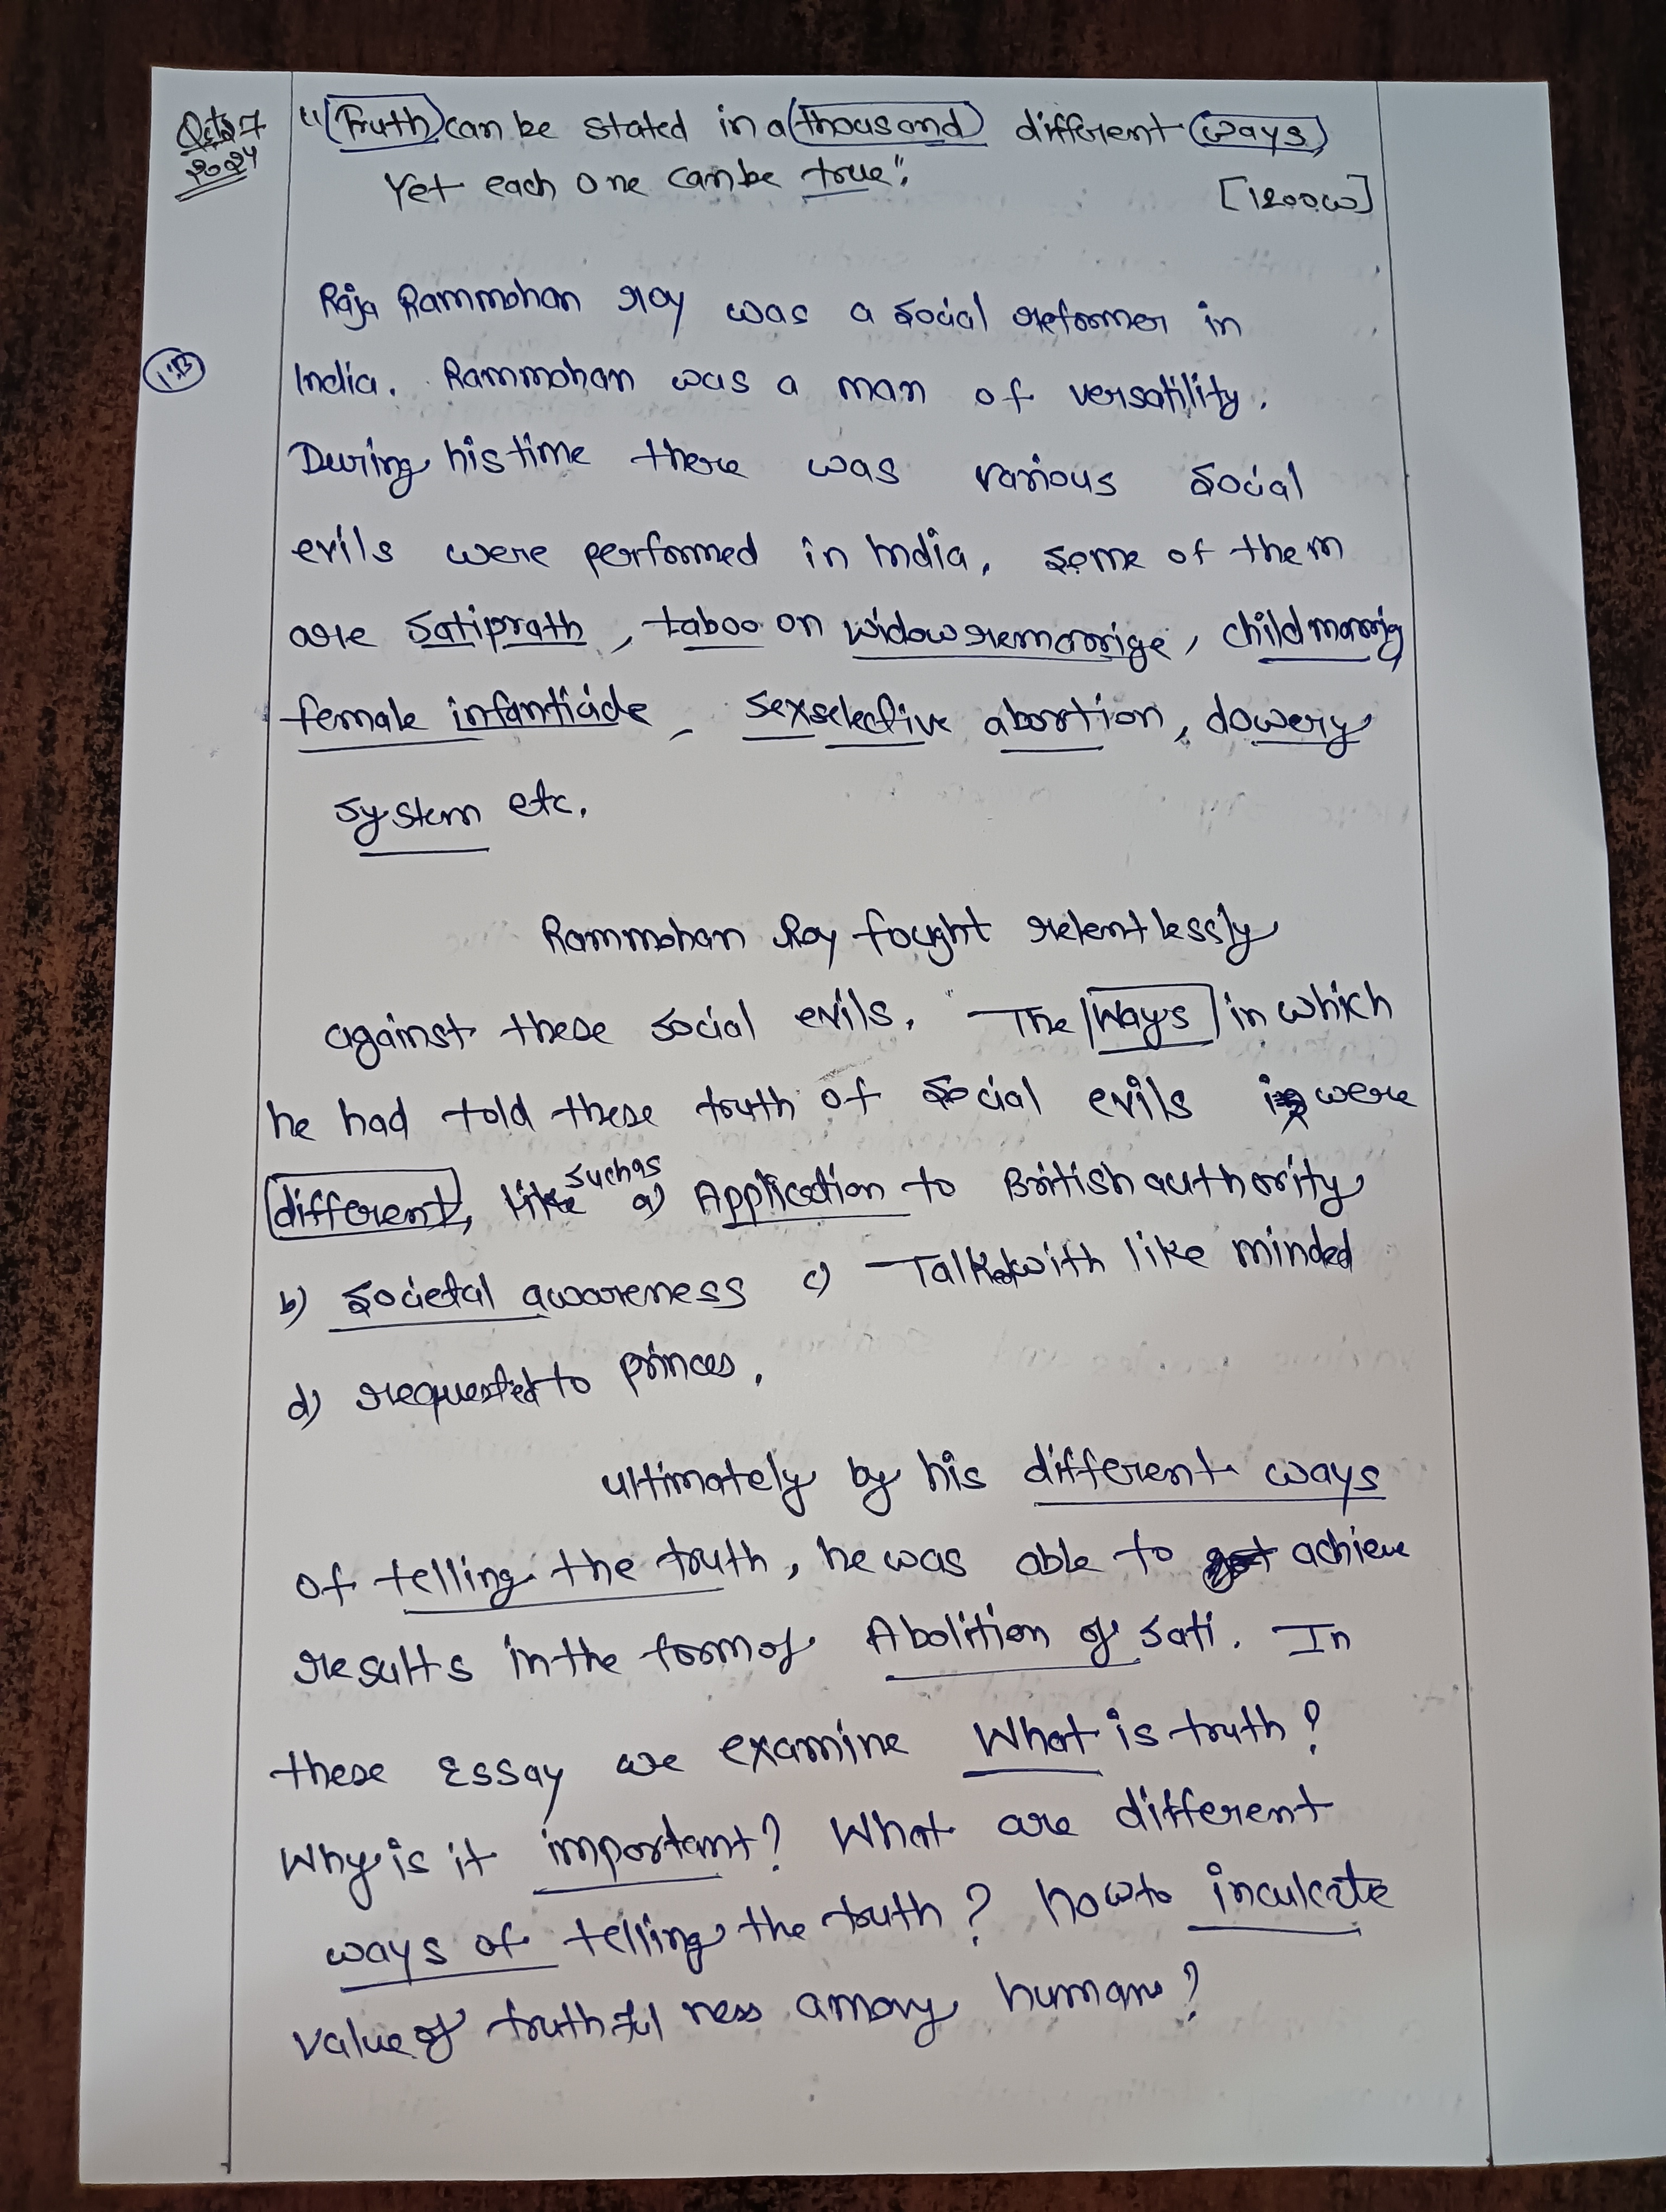 Oct 27 "Truth can be stated in a thousand different ways
2024 Yet each one can be true".
[1200w]
Raja Rammohan roy was a social reformer in
India. Rammohan was a man of versatility.
During his time there was various social
evils were performed in India, some of them
are satiprath, taboo on widow remarrige, child marrig
female infanticide, sexselective abortion, dowery
system etc.
Rammohan Roy fought relentlessly
against these social evils. The ways in which
he had told these truth of social evils were
different, such as a) Application to British authority
b) societal awareness c) Talk with like minded
d) requested to princes.
ultimately by his different ways
of telling the truth, he was able to achieve
results in the form of Abolition of sati. In
these Essay we examine What is truth?
Why is it important? What are different
ways of telling the truth? how to inculcate
value of truthfulness among humans?